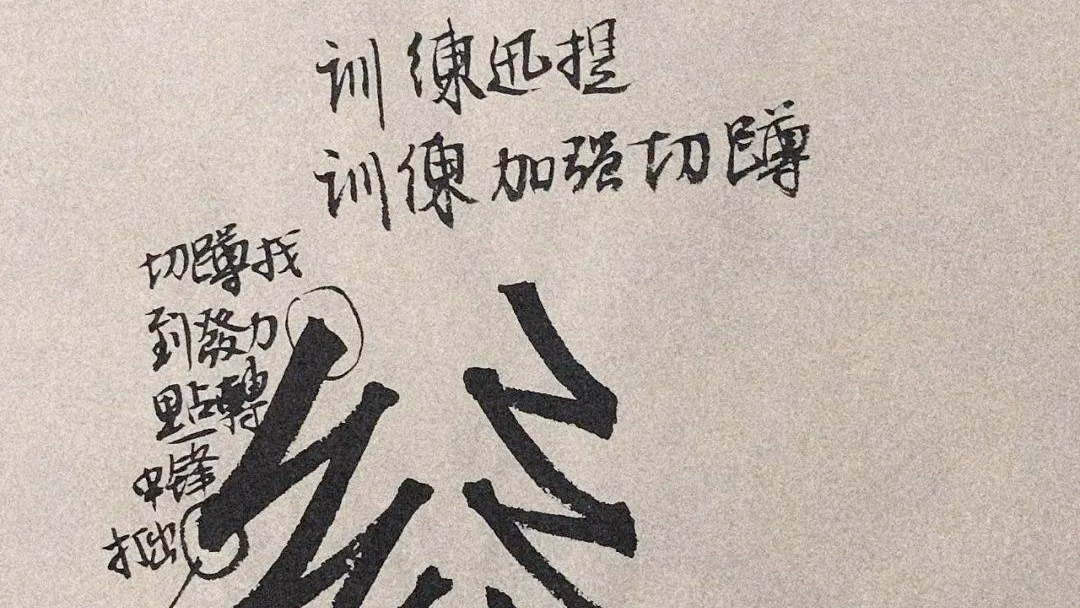 训練迅提
训練加强切蹲
切蹲找
到發力
點轉
中锋